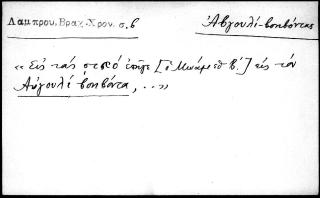 Λαμπρου, Βραχ. Χρον. σ, 6
Αὐγουλί-βοηβόντας
« Εἰς τὰς [ὁ Μωάμεθ Β΄.] εἰς τὸν
Αὐγουλί βοηβόντα, ... »